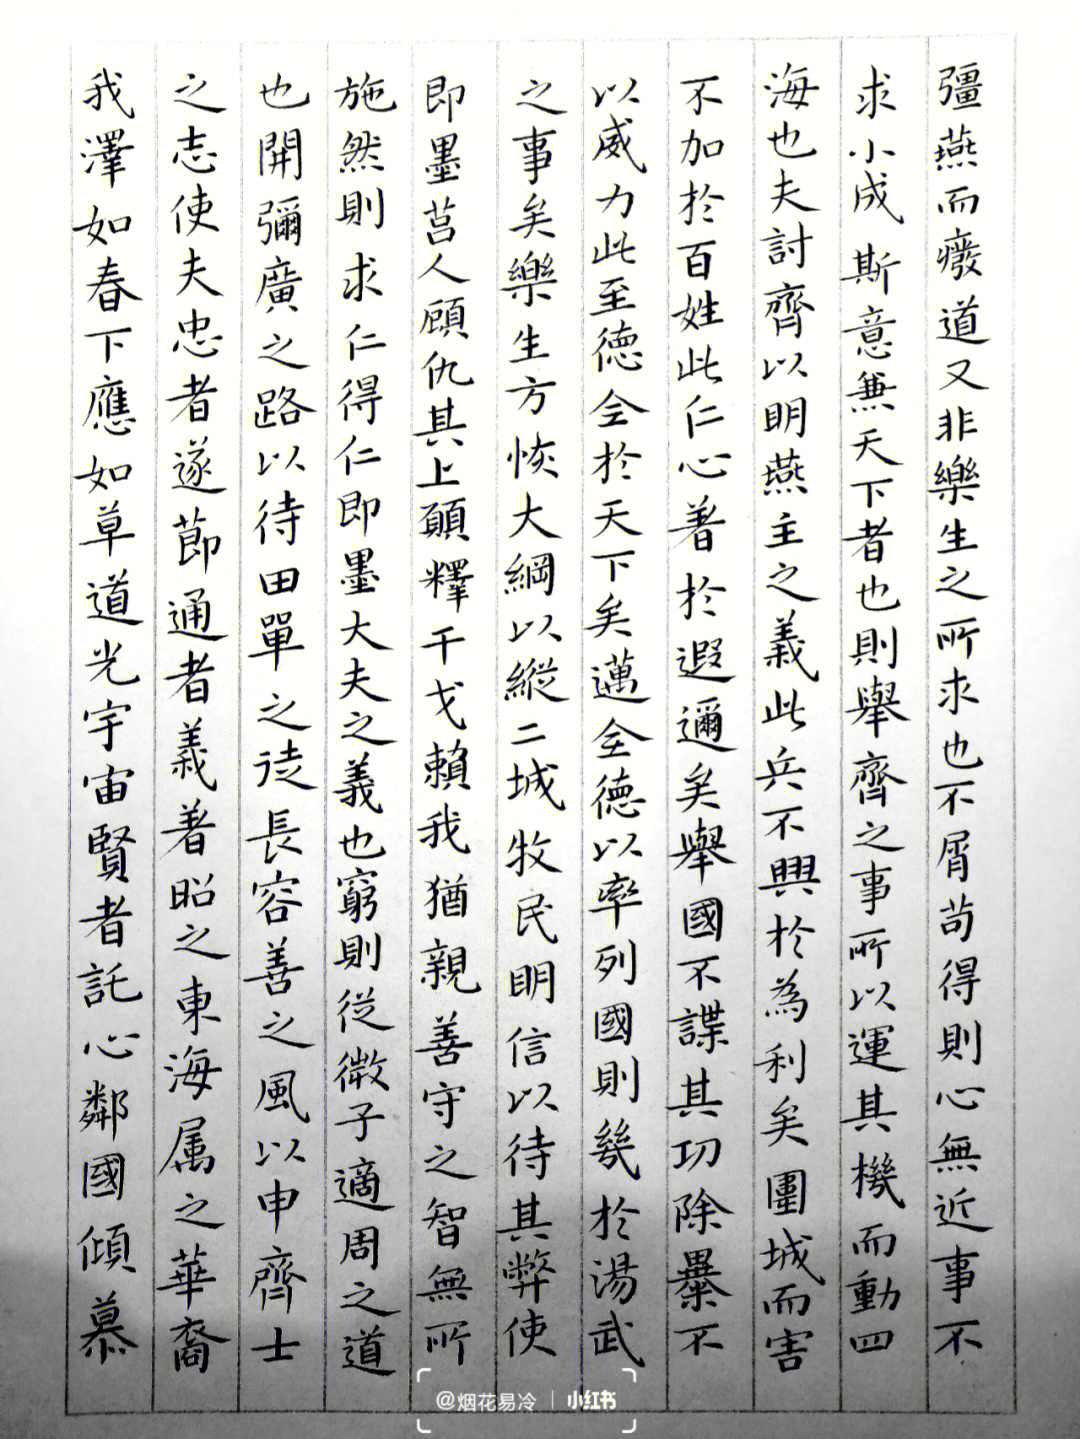 彊燕而癈道又非樂生之所求也不屑苟得則心無近事不
求小成斯意兼天下者也則舉齊之事所以運其機而動四
海也夫討齊以明燕主之義此兵不興於為利矣圍城而害
不加於百姓此仁心著於遐邇矣舉國不謀其功除暴不
以威力此至德全於天下矣邁全德以率列國則幾於湯武
之事矣樂生方恢大綱以縱二城牧民明信以待其弊使
即墨莒人顧仇其上願釋干戈賴我猶親善守之智無所
施然則求仁得仁即墨大夫之義也窮則從微子適周之道
也開彌廣之路以待田單之徒長容善之風以申齊士
之志使夫忠者遂節通者義著昭之東海属之華裔
我澤如春下應如草道光宇宙賢者託心鄰國傾慕
@烟花易冷 | 小红书